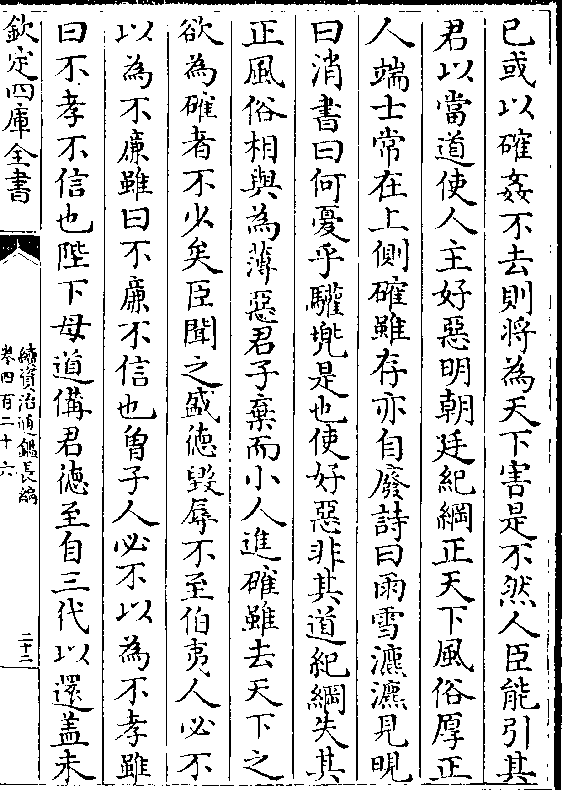 已或以確姦不去則將為天下害是不然人臣能引其
君以當道使人主好惡明朝廷紀綱正天下風俗厚正
人端士常在上側確雖存亦自廢詩曰雨雪瀌瀌見晛
曰消書曰何憂乎驩兠是也使好惡非其道紀綱失其
正風俗相與為薄惡君子棄而小人進確雖去天下之
欲為確者不少矣臣聞之盛徳毀辱不至伯夷人必不
以為不廉雖曰不廉不信也曾子人必不以為不孝雖
曰不孝不信也陛下母道備君徳至自三代以還盖未
欽定四庫全書
續資治通鑑長編
卷四百二十六
二十二